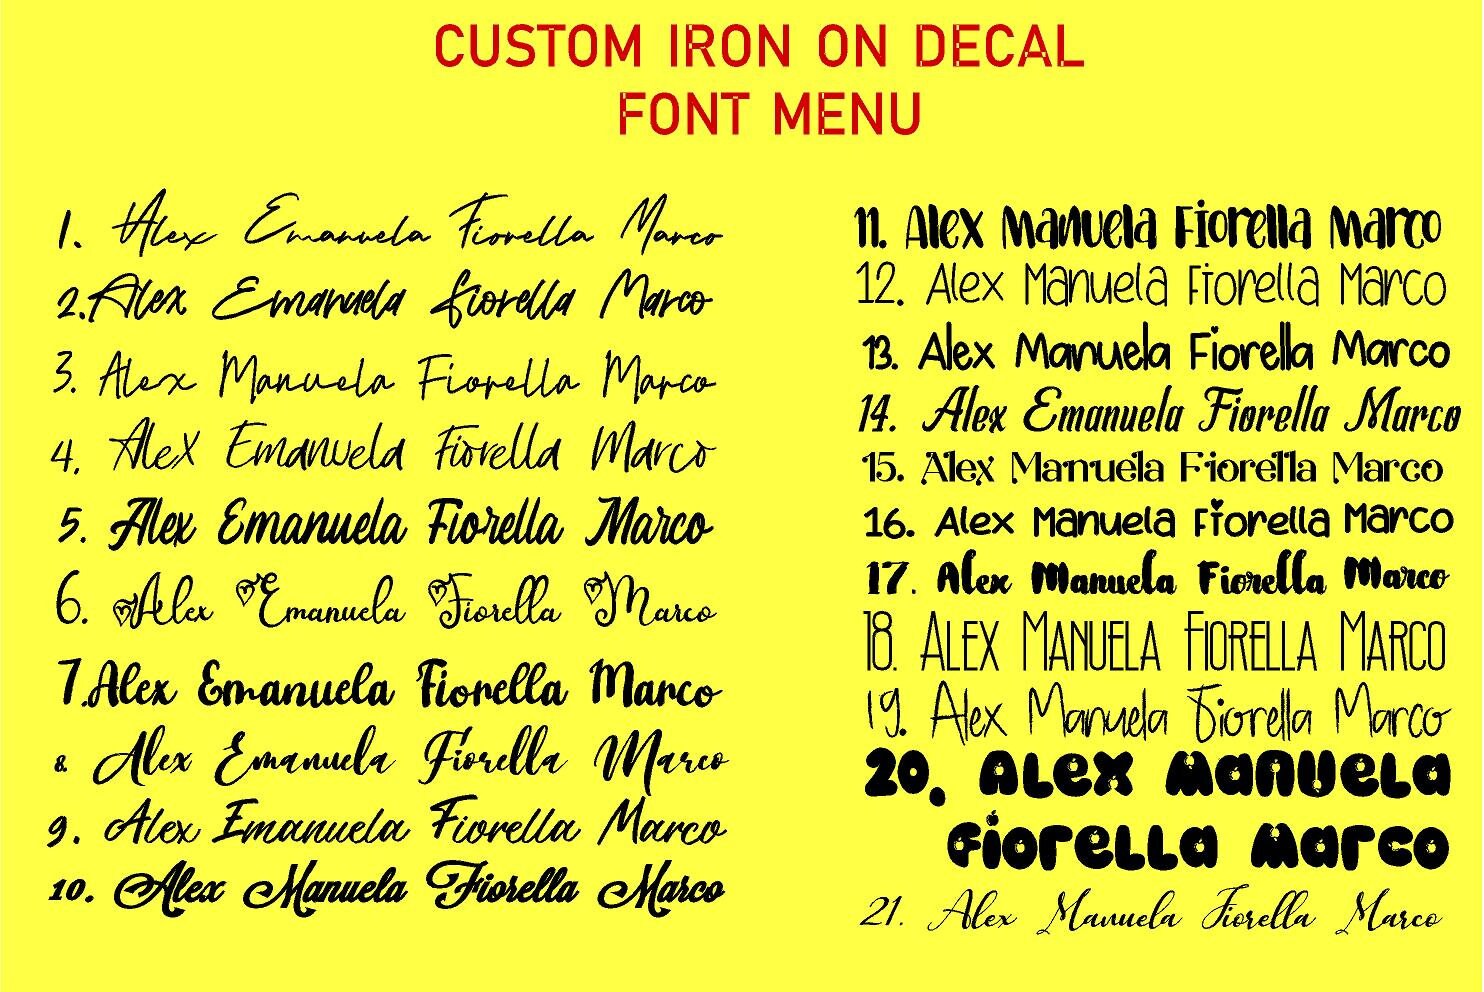 CUSTOM IRON ON DECAL
FONT MENU
1. Alex Emanuela Fiorella Marco
2. Alex Emanuela Fiorella Marco
3. Alex Manuela Fiorella Marco
4. Alex Emanuela Fiorella Marco
5. Alex Emanuela Fiorella Marco
6. Alex Emanuela Fiorella Marco
7. Alex Emanuela Fiorella Marco
8. Alex Emanuela Fiorella Marco
9. Alex Emanuela Fiorella Marco
10. Alex Manuela Fiorella Marco
11. Alex Manuela Fiorella Marco
12. Alex Manuela Fiorella Marco
13. Alex Manuela Fiorella Marco
14. Alex Emanuela Fiorella Marco
15. Alex Manuela Fiorella Marco
16. Alex Manuela Fiorella Marco
17. Alex Manuela Fiorella Marco
18. ALEX MANUELA FIORELLA MARCO
19. Alex Manuela Fiorella Marco
20. Alex Manuela
Fiorella Marco
21. Alex Manuela Fiorella Marco